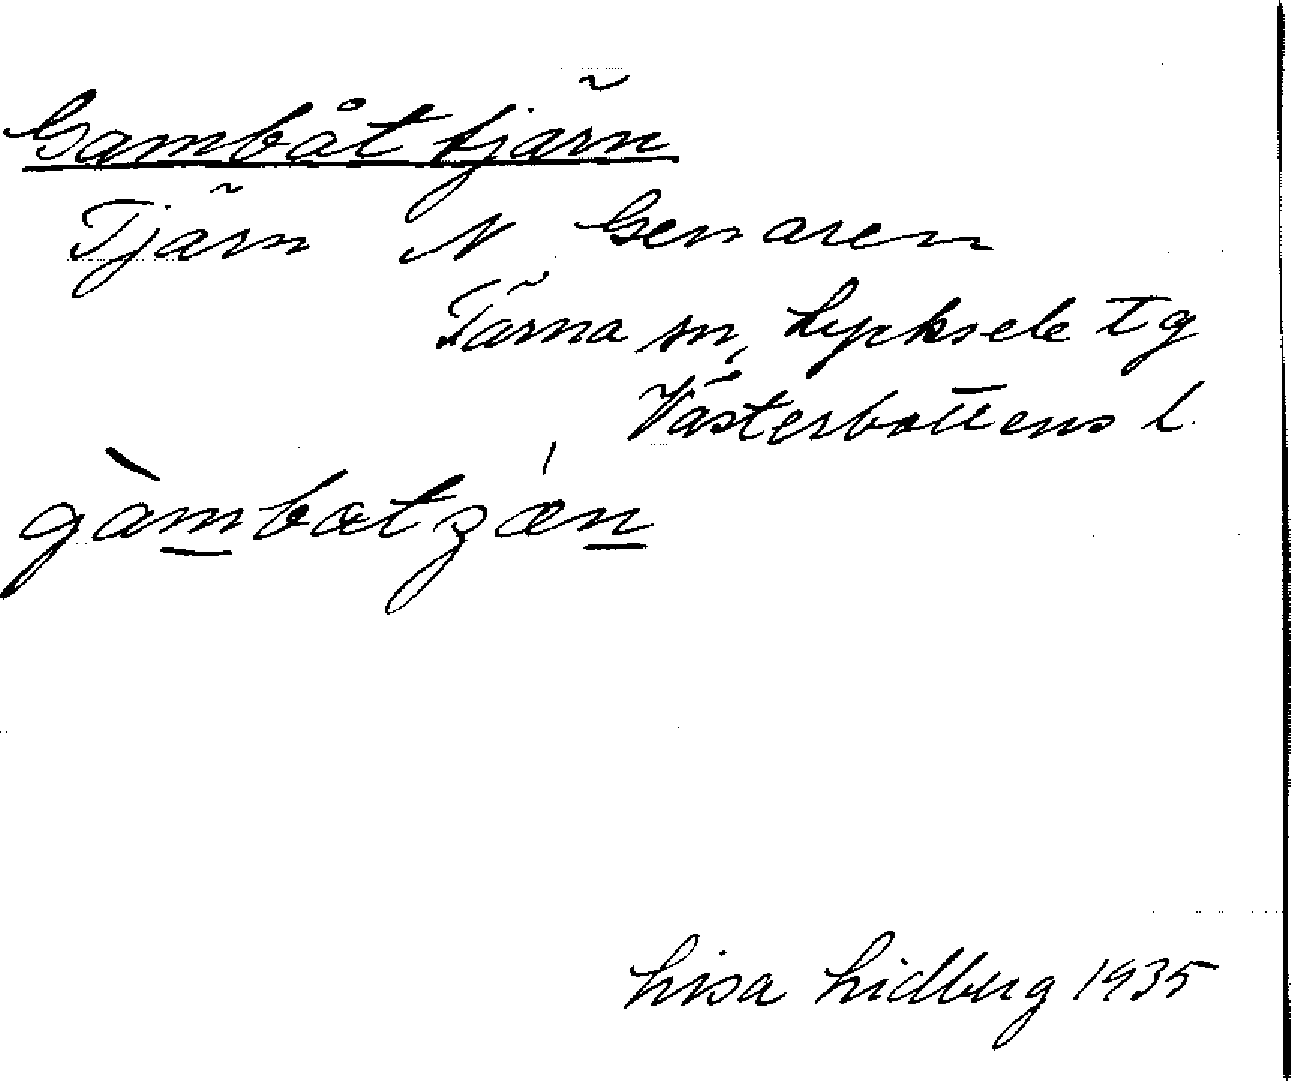 Gambåttjärn
Tjärn N Genaren
Tärna sn, Lycksele tg
Västerbottens l.
gàmbatzǽn
Lisa Lidberg 1935